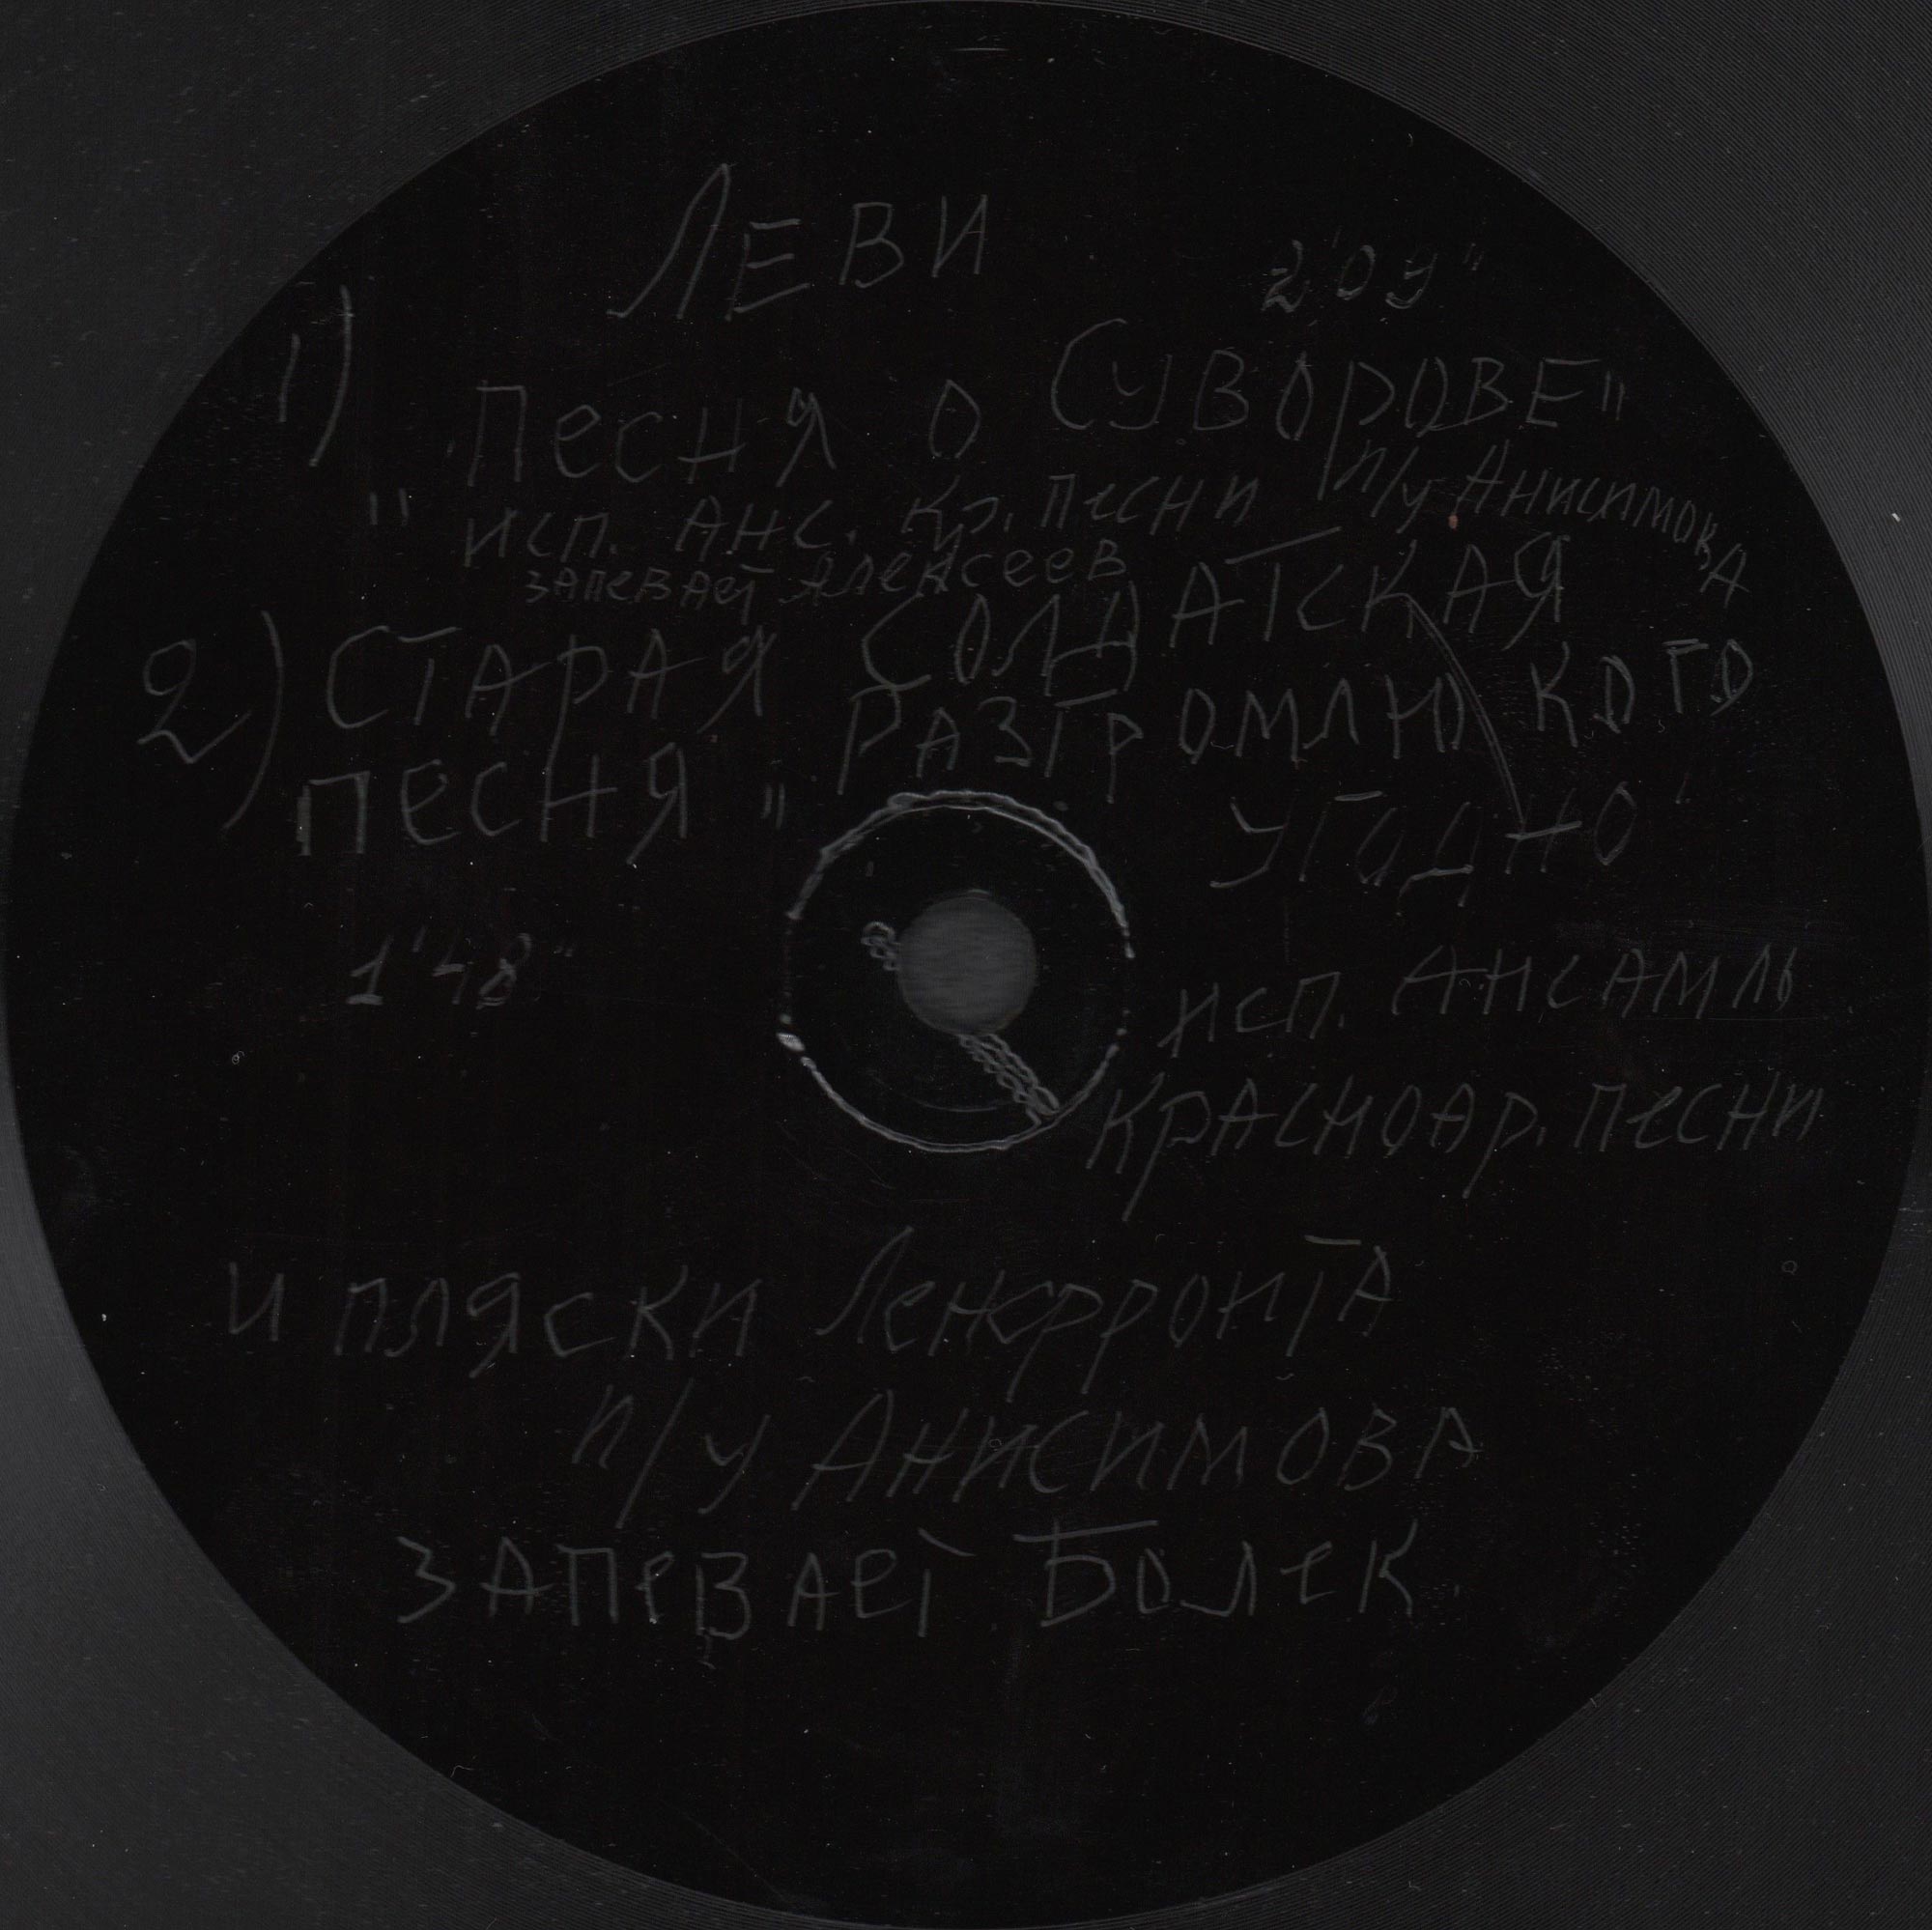 ЛЕВИ
2'04"
1) "ПЕСНЯ О СУВОРОВЕ"
ИСП. АНС. КР. ПЕСНИ П/У АНИСИМОВА
ЗАПЕВАЕТ АЛЕКСЕЕВ
2) СТАРАЯ СОЛДАТСКАЯ
ПЕСНЯ "РАЗГРОМЛЮ КОГО
УГОДНО"
1'48"
ИСП. АНСАМЛЬ
КРАСНОАР. ПЕСНИ
И ПЛЯСКИ ЛЕНФРОНТА
П/У АНИСИМОВА
ЗАПЕВАЕТ БОЛЕК.